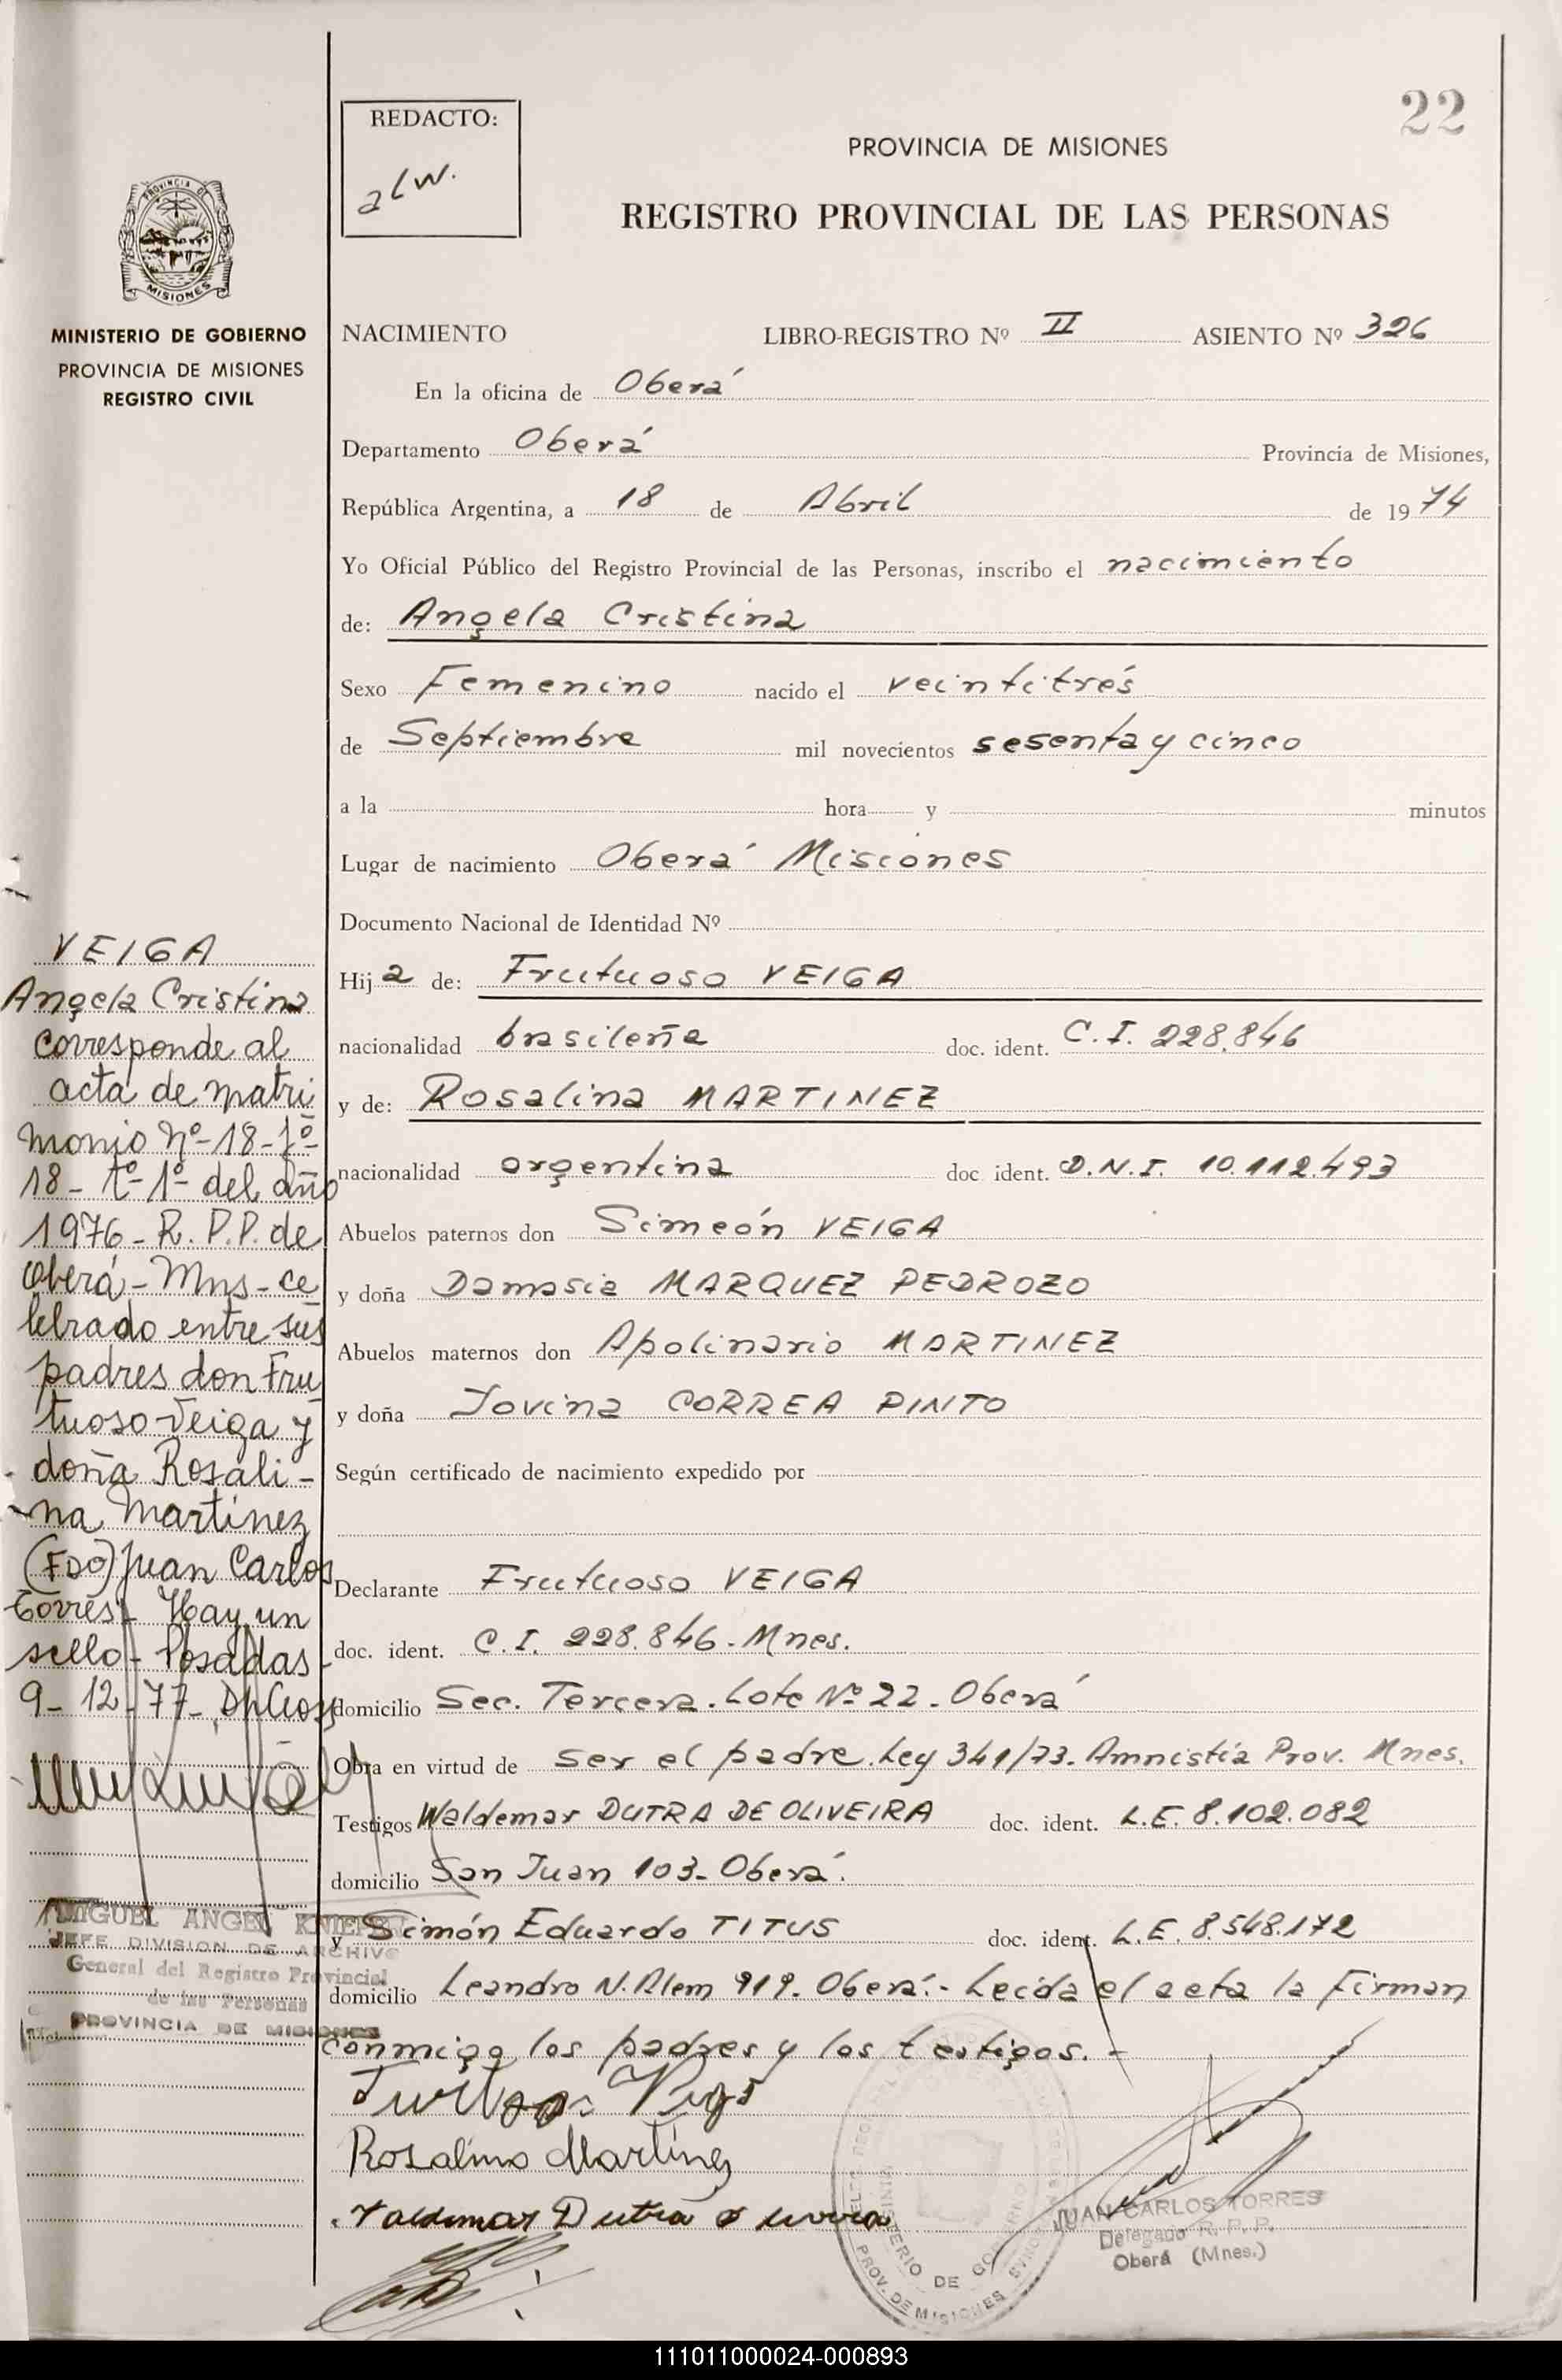 22
REDACTO:
alw.
PROVINCIA DE MISIONES
REGISTRO PROVINCIAL DE LAS PERSONAS
PROVINCIA DE
MISIONES
MINISTERIO DE GOBIERNO
PROVINCIA DE MISIONES
REGISTRO CIVIL
NACIMIENTO LIBRO-REGISTRO Nº II ASIENTO Nº 326
En la oficina de Oberá
Departamento Oberá Provincia de Misiones,
República Argentina, a 18 de Abril de 1974
Yo Oficial Público del Registro Provincial de las Personas, inscribo el nacimiento
de: Angela Cristina
Sexo Femenino nacido el veintitrés
de Septiembre mil novecientos sesenta y cinco
a la hora y minutos
Lugar de nacimiento Oberá Misiones
Documento Nacional de Identidad Nº
Hija de: Frutuoso VEIGA
nacionalidad brasileña doc. ident. C.I. 228.846
y de: Rosalina MARTINEZ
nacionalidad argentina doc. ident. D.N.I. 10.112.493
Abuelos paternos don Simeón VEIGA
y doña Damasia MARQUEZ PEDROZO
Abuelos maternos don Apolinario MARTINEZ
y doña Jovina CORREA PINTO
Según certificado de nacimiento expedido por
Declarante Frutuoso VEIGA
doc. ident. C.I. 228.846. Mnes.
domicilio Sec. Tercera. Lote Nº 22. Oberá
Obra en virtud de ser el padre. Ley 341/73. Amnistía Prov. Mnes.
Testigos Waldemar DUTRA DE OLIVEIRA doc. ident. L.E. 8.102.082
domicilio San Juan 103- Oberá.
y Simón Eduardo TITUS doc. ident. L.E. 8.548.172
domicilio Leandro N. Alem 919. Oberá.- Leída el acta la firman
conmigo los padres y los testigos.-
Rosalino Martinez
Valdemar Dutra
JUAN CARLOS TORRES
Delegado R. P. P.
Oberá (Mnes.)
MINISTERIO DE GOBIERNO
PROV. DE MISIONES
VEIGA
Angela Cristina
corresponde al
acta de matri
monio Nº-18-fº-
18- tº-1º del año
1976- R. P.P. de
Oberá- Mns- ce
lebrado entre sus
padres don Fru
tuoso Veiga y
doña Rosali-
na Martinez
(FDO) Juan Carlos
Torres- Hay un
sello- Posadas-
9- 12- 77-
MIGUEL ANGEL
JEFE DIVISION DE ARCHIVO
General del Registro Provincial
de las Personas
PROVINCIA DE MISIONES
111011000024-000893